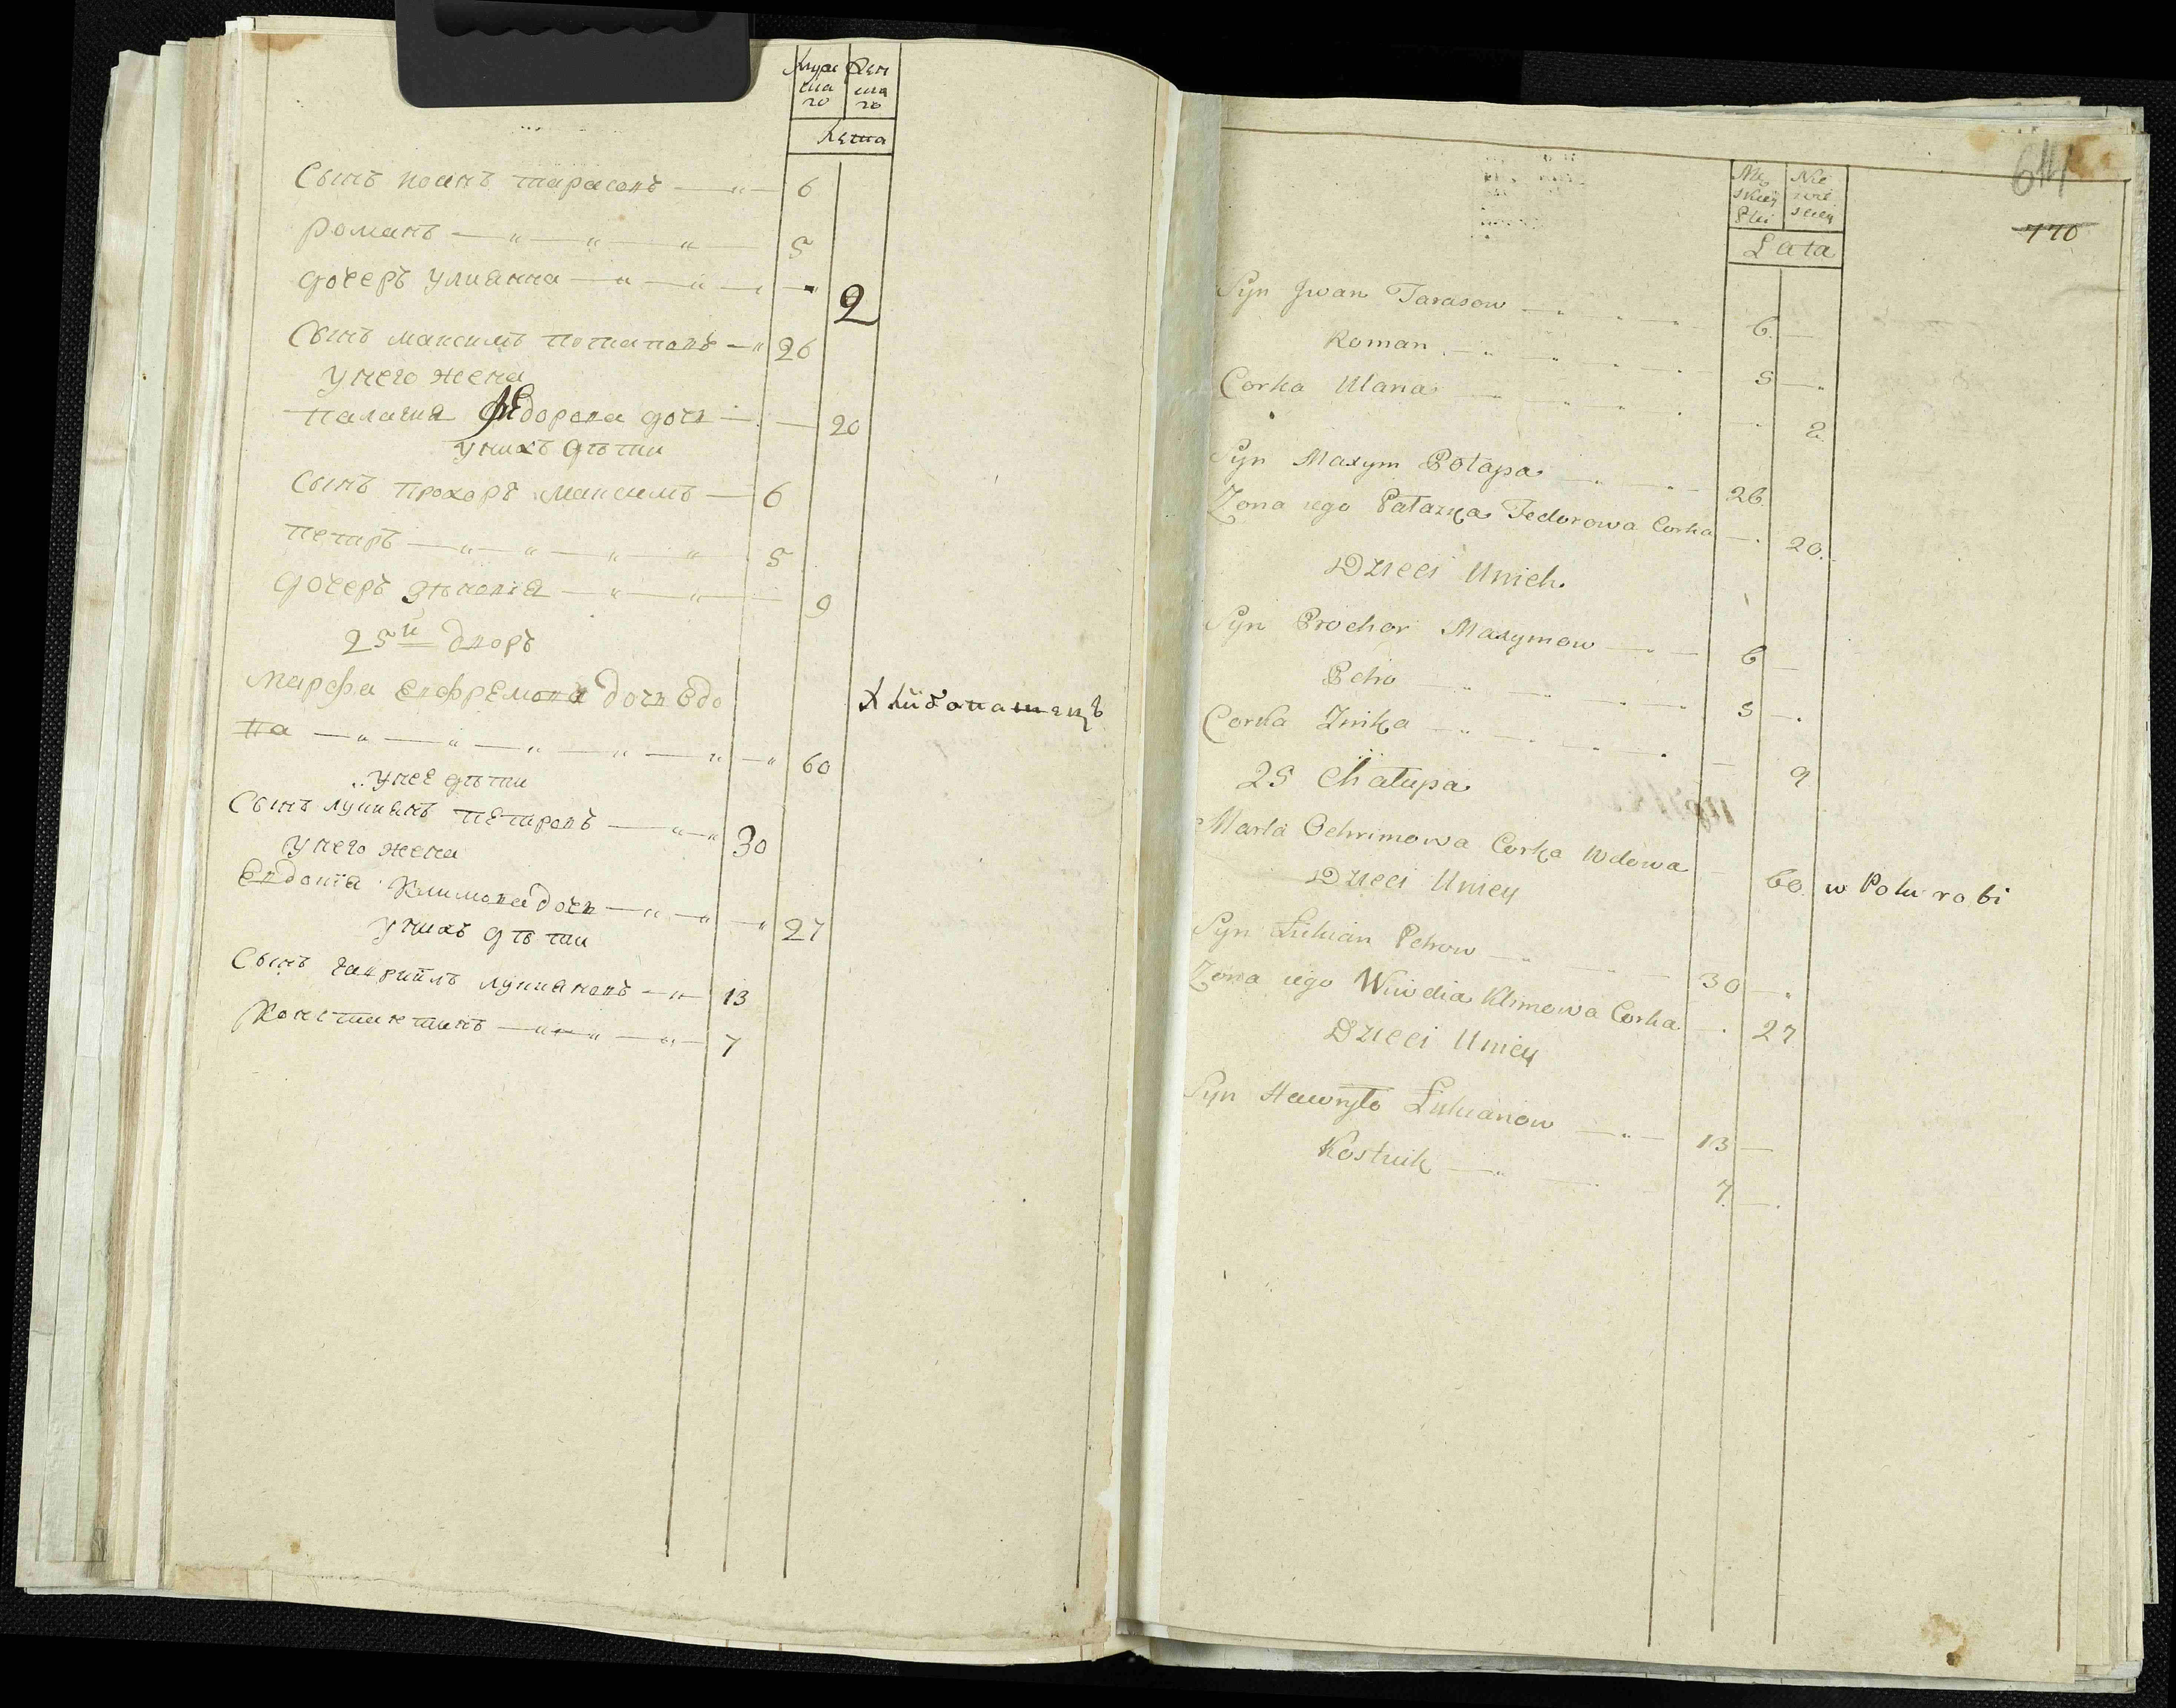 Муже Жен
ска ска
го го
Лета
Сынъ иоанъ тарасовъ — „ — 6
романъ — „ — „ — „ — 5
дочеръ улианна — „ — „ — 2
Сынъ максимъ потаповъ — „ 26
у него жена
палагия Федорова дочь — 20
у нихъ дѣти
Сынъ прохоръ максимъ — 6
петръ — „ — „ — „ „ 5
дочеръ зѣновія — „ — „ — 9
25й дворъ
марфа евфремова дочь вдо Хлибопашецъ
ва — „ — „ — „ — „ — „ — „ 60
у нее дѣти
Сынъ лукианъ петровъ — „ — „ 30
у него жена
Евдокїа Климова дочь — „ — „ — „ 27
у нихъ дѣти
Сынъ гавриилъ лукиановъ — „ — 13
Константинъ — „ — „ — „ — 7
614
770
Mę Nie
skiey wie
Płci sciey
Lata
Syn Jwan Tarasow 6. —
Roman 5 —
Corka Ulana 2.
Syn Maxym Potapa 26.
Zona iego Pałazka Fedorowa Corka — 20.
Dzieci Unich.
Syn Prochor Maxymow 6 —
Petro 5 —.
Corka Zinka 9
25 Chałupa
Marta Ochrimowa Corka Wdowa 60. w Polu robi
Dzieci Uniey
Syn Łukian Petrow 30 —
Zona iego Wiwdia Klimowa Corka — 27
Dzieci Uniey
Syn Hawryło Łukianow 13 —
Kostiuk 7. —.